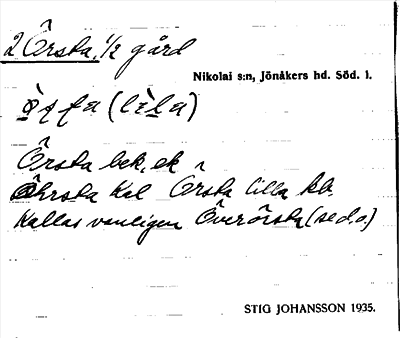 2 Örsta, 1/2 gård
Nikolai s:n, Jönåkers hd. Söd. l.
(lìla)
Örsta bek. ek
Öhrsta Kal Örsta lilla kb.
Kallas vanligen Överörsta (se d.o.)
STIG JOHANSSON 1935.